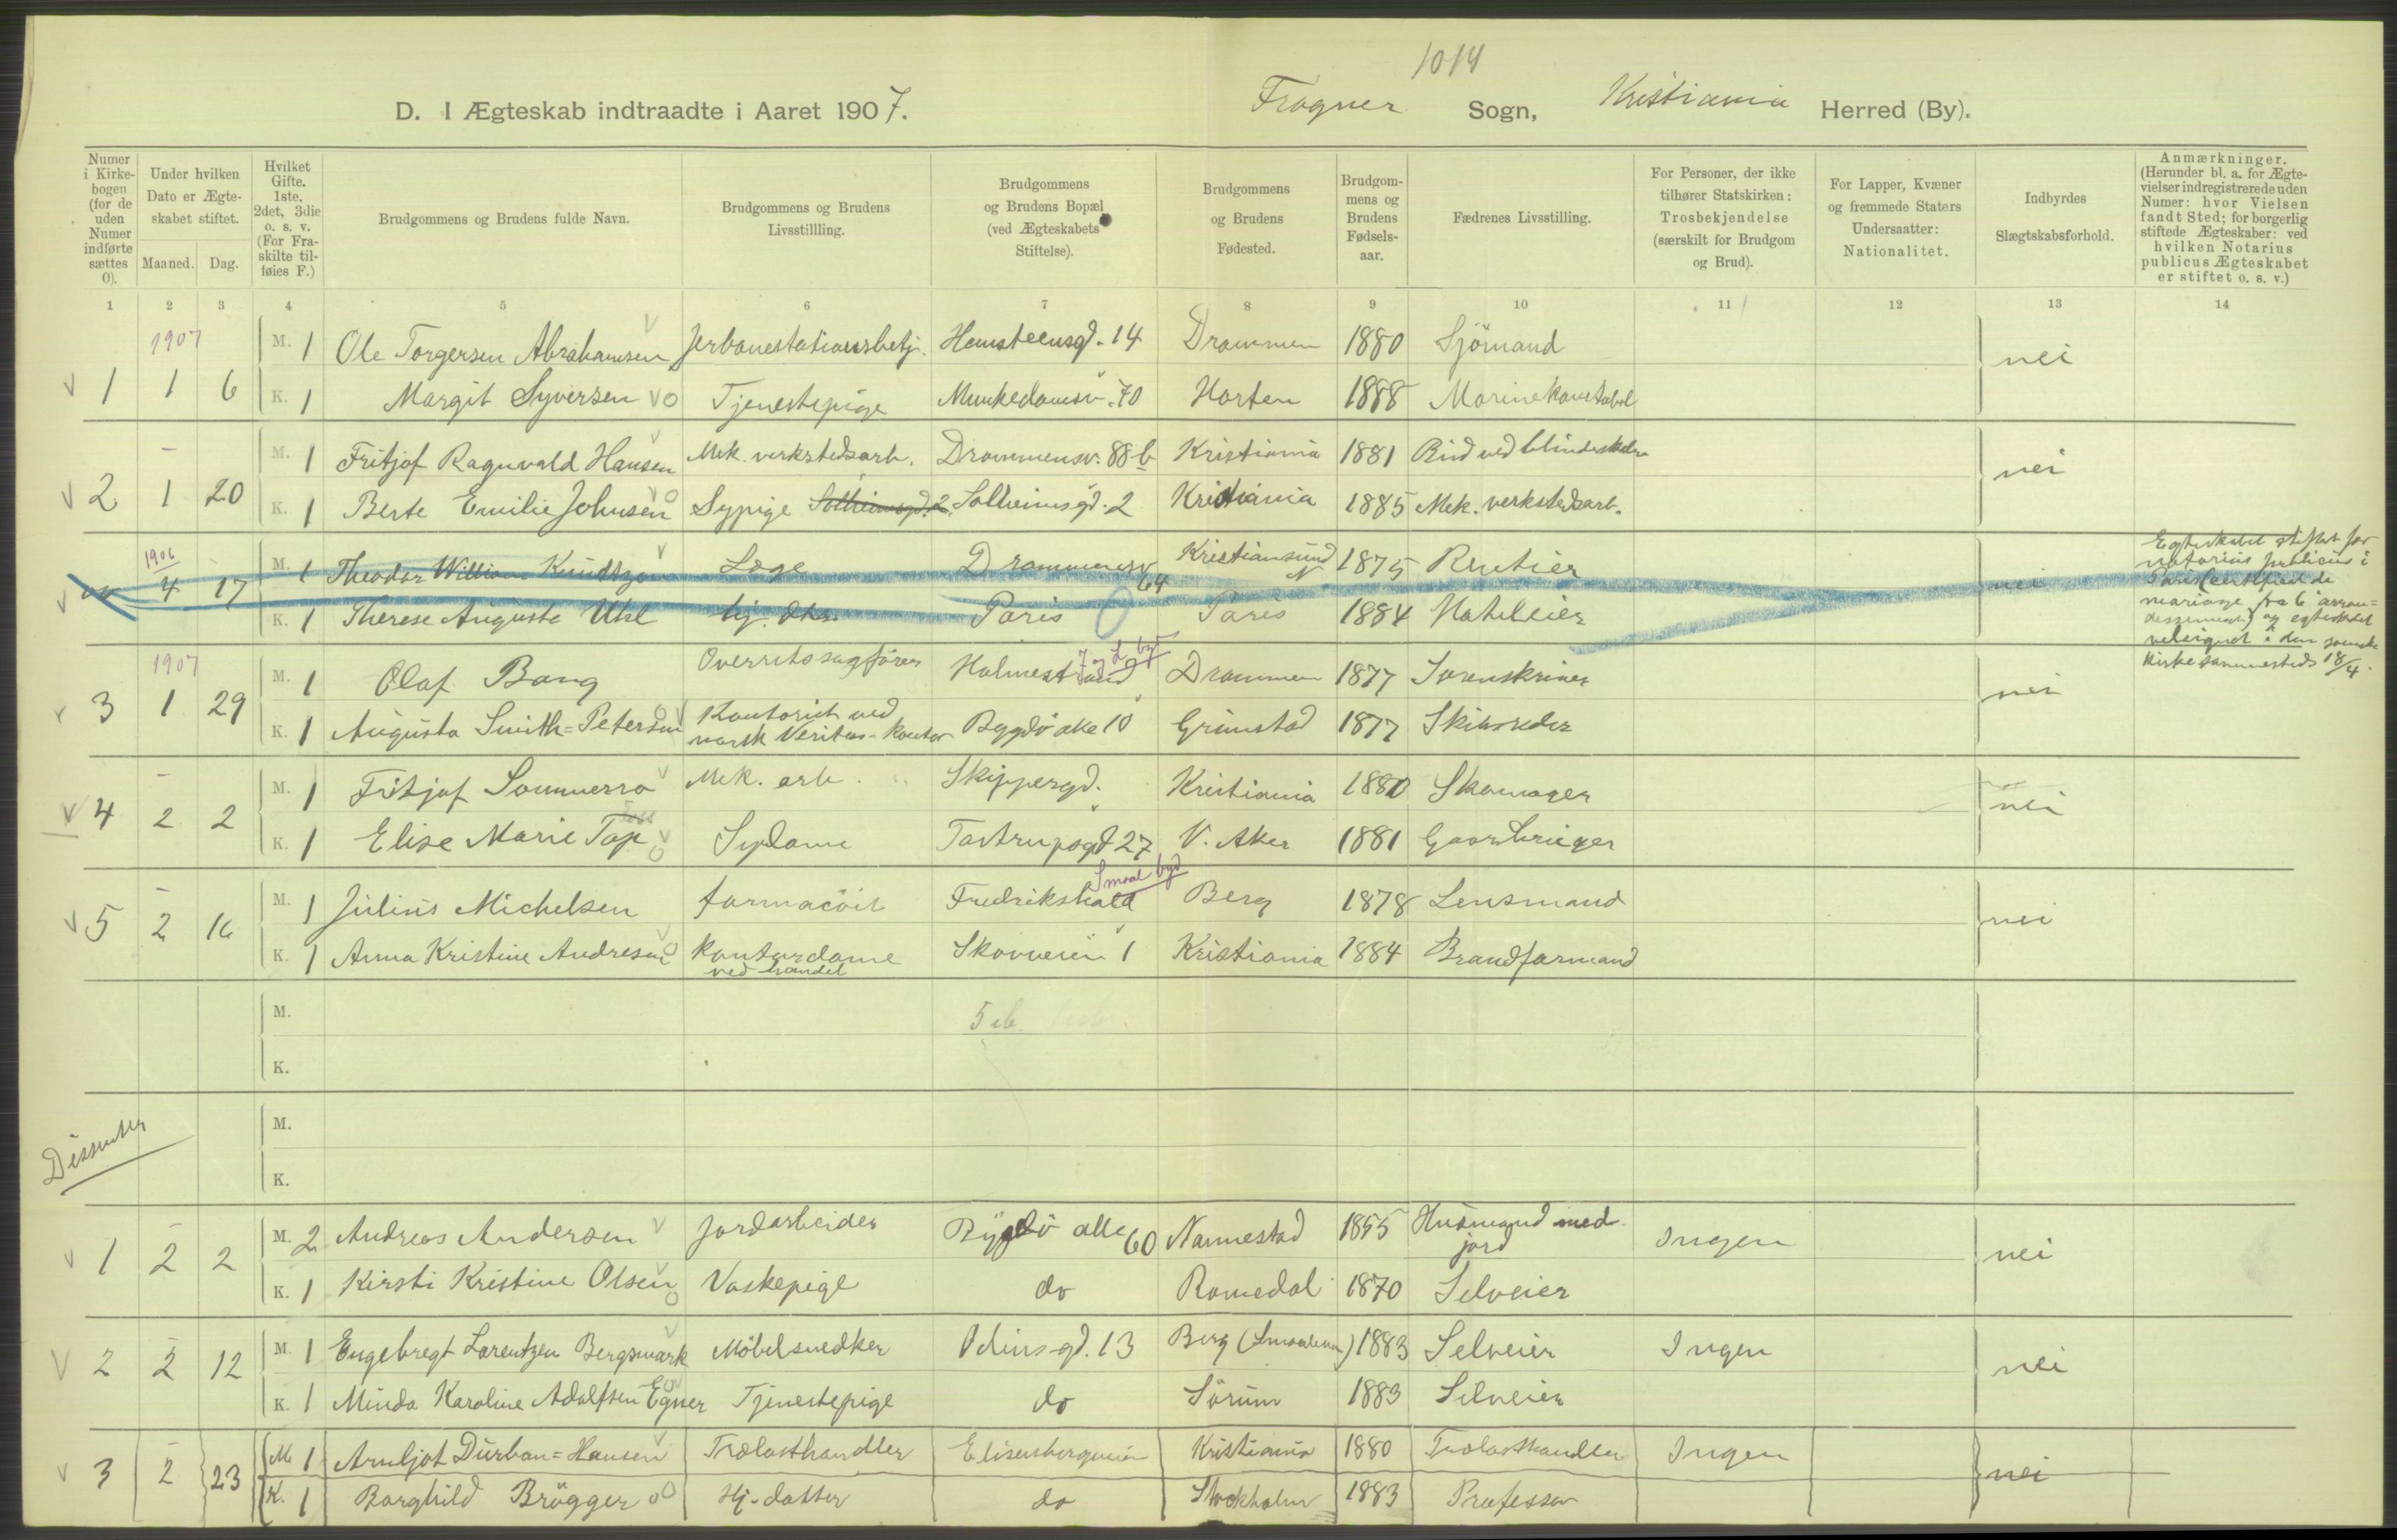 1014
D. I Ægteskab indtraadte i Aaret 1907. Frogner Sogn, Kristiania Herred (By).
Numer i Kirke-bogen (for de uden Numer indførte sættes 0).
Under hvilken Dato er Ægte-skabet stiftet.
Maaned. Dag.
Hvilket Gifte. 1ste, 2det, 3die o. s. v. (For Fra-skilte til-føies F.)
Brudgommens og Brudens fulde Navn.
Brudgommens og Brudens Livsstillling.
Brudgommens og Brudens Bopæl (ved Ægteskabets Stiftelse).
Brudgommens og Brudens Fødested.
Brudgom-mens og Brudens Fødsels-aar.
Fædrenes Livsstilling.
For Personer, der ikke tilhører Statskirken: Trosbekjendelse (særskilt for Brudgom og Brud).
For Lapper, Kvæner og fremmede Staters Undersaatter: Nationalitet.
Indbyrdes Slægtskabsforhold.
Anmærkninger. (Herunder bl. a. for Ægte-vielser indregistrerede uden Numer: hvor Vielsen fandt Sted; for borgerlig stiftede Ægteskaber: ved hvilken Notarius publicus Ægteskabet er stiftet o. s. v.)
1 2 3 4 5 6 7 8 9 10 11 12 13 14
1907 M. 1 Ole Torgersen Abrahamsen Jerbanestationsbetj. Hemsteensgd. 14 Drammen 1880 Sjömand nei
1 1 6 K. 1 Margit Syversen Tjenestepige Munkedamsv. 70 Horten 1888 Marinekonstabel
M. 1 Fritjof Ragnvald Hansen Mek. verkstedsarb. Drammensv. 88 b Kristiania 1881 Bud ved blindeskolen nei
2 1 20 K. 1 Berte Emilie Johnsen Sypige Solheimsgd. 2 Solheimsgd. 2 Kristiania 1885 Mek. verkstedsarb.
1906 M. 1 Theodor William Knudtzon Læge Drammensv 64 Kristiansund N 1875 Rentier nei
4 17 K. 1 Therese Auguste Uhl hj. dtr. Paris Paris 1884 Hoteleier
Egteskabet stiftet for notarius publicus i Paris (certificat de mariage fra 6 arron=dissement) og egteskabet velsignet i den svenske kirke sammesteds 18/4.
1907 M. 1 Olaf Bang Overretssagförer Holmestrand J og L byd Drammen 1877 Sorenskriver nei
3 1 29 K. 1 Augusta Smith=Petersen Kontorist ved norsk Veritas-kontor Bygdö alle 10 Grimstad 1877 Skibsreder
M. 1 Fritjof Sommerro Mek. arb. Skippergd. Kristiania 1880 Skomager nei
4 2 2 K. 1 Elise Marie Top Sydame Tostrupsgd 27 V. Aker 1881 Gaardbruger
M. 1 Julius Michelsen farmacöit Fredrikshald Smaal byd Berg 1878 Lensmand nei
5 2 16 K. 1 Anna Kristine Andresen kontordame ved handel Skovveien 1 Kristiania 1884 Brandformand
M.
K.
M.
Dissenter
K.
M. 2 Andreas Andersen Jordarbeider Bygdö alle 60 Nannestad 1855 Husmand med jord Ingen nei
1 2 2 K. 1 Kirsti Kristine Olsen Vaskepige do Romedal 1870 Selveier
M. 1 Engebregt Lorentzen Bergsmark Möbelsnedker Odinsgd. 13 Berg (Smaalenene) 1883 Selveier Ingen nei
2 2 12 K. 1 Minda Karoline Adolfsen Egner Tjenestepige do Sörum 1883 Selveier
M 1 Arnljot Durban=Hansen Trælasthandler Elisenbergveien Kristiania 1880 Trælasthandler Ingen nei
3 2 23 K. 1 Borghild Brögger Hj-datter do Stockholm 1883 Professor